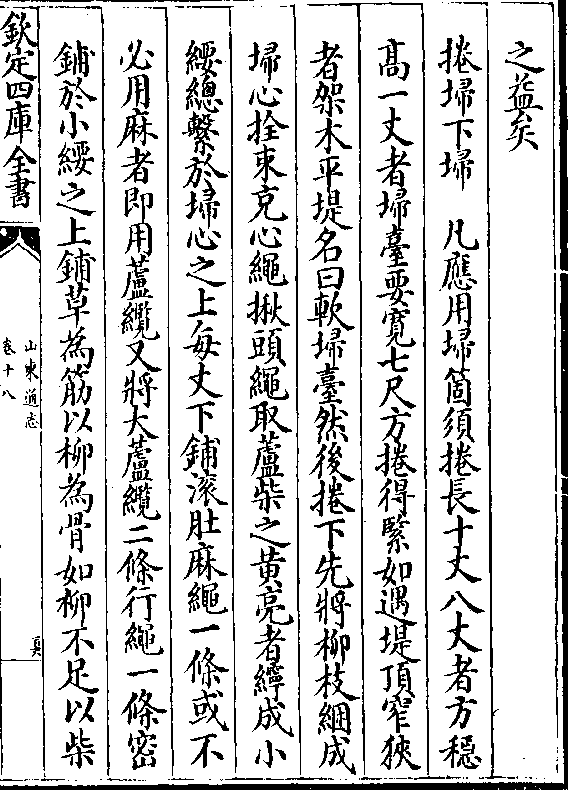 之益矣
捲埽下埽　凡應用埽箇須捲長十丈八丈者方穩
高一丈者埽臺要寛七尺方捲得緊如遇堤頂窄狹
者架木平堤名曰軟埽臺然後捲下先將柳枝綑成
埽心拴束充心繩揪頭繩取蘆柴之黄亮者纏成小
㬸總繫於埽心之上每丈下鋪滾肚麻繩一條或不
必用麻者即用蘆纜又將大蘆纜二條行繩一條密
鋪於小㬸之上鋪草為筋以柳為骨如柳不足以柴
欽定四庫全書
山東通志
卷十八